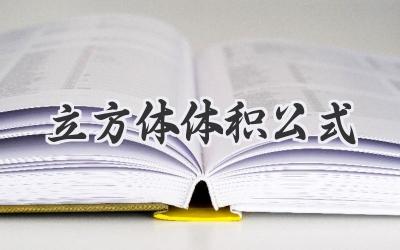 立方体体积公式